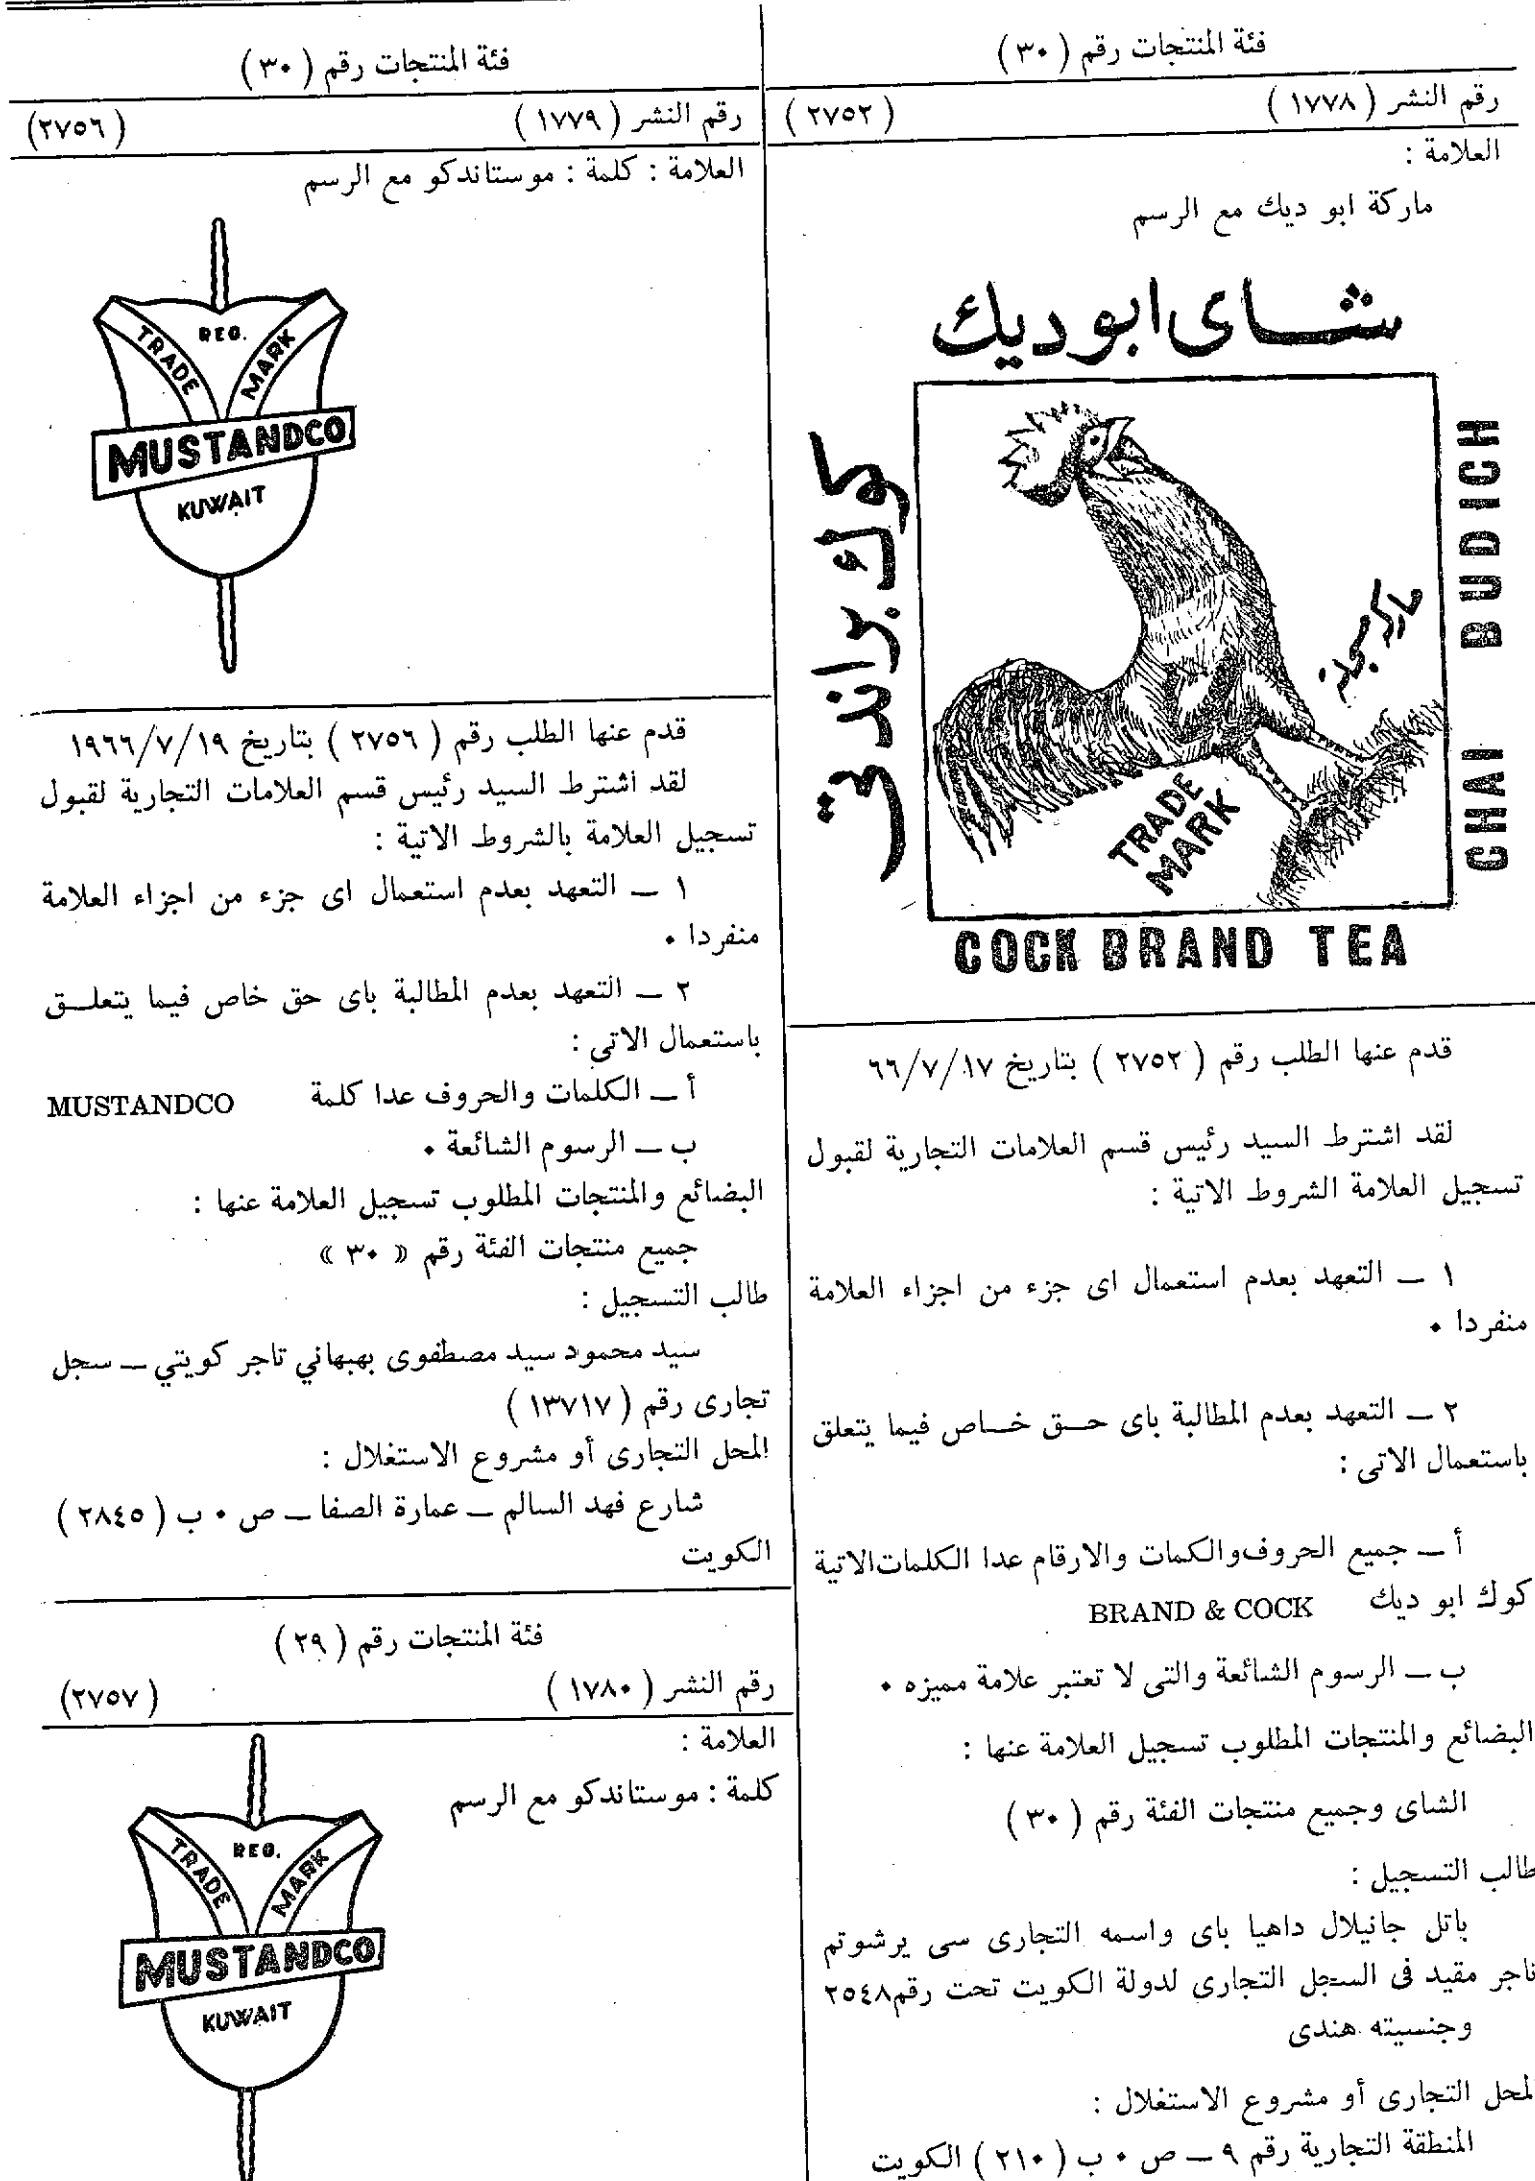 فئة المنتجات رقم ( ٣٠ )
رقم النشر ( ١٧٧٨ ) ( ٢٧٥٢ )
العلامة :
ماركة ابو ديك مع الرسم
شاى ابو ديك
كوك براندتى
CHAI BUDICH
ماركه مسجلة
TRADE
MARK
COCK BRAND TEA
قدم عنها الطلب رقم ( ٢٧٥٢ ) بتاريخ ٦٦/٧/١٧
لقد اشترط السيد رئيس قسم العلامات التجارية لقبول
تسجيل العلامة الشروط الاتية :
١ ــ التعهد بعدم استعمال اى جزء من اجزاء العلامة
منفردا ٠
٢ ــ التعهد بعدم المطالبة باى حــق خــاص فيما يتعلق
باستعمال الاتى :
أ ــ جميع الحروف والكمات والارقام عدا الكلمات الاتية
كوك ابو ديك BRAND & COCK
ب ــ الرسوم الشائعة والتى لا تعتبر علامة مميزه ٠
البضائع والمنتجات المطلوب تسجيل العلامة عنها :
الشاى وجميع منتجات الفئة رقم ( ٣٠ )
طالب التسجيل :
باتل جانيلال داهيا باى واسمه التجارى سى يرشوتم
تاجر مقيد فى السجل التجارى لدولة الكويت تحت رقم ٢٥٤٨
وجنسيته هندى
المحل التجارى أو مشروع الاستغلال :
المنطقة التجارية رقم ٩ ــ ص ٠ ب ( ٢١٠ ) الكويت
فئة المنتجات رقم ( ٣٠ )
رقم النشر ( ١٧٧٩ ) (٢٧٥٦)
العلامة : كلمة : موستاندكو مع الرسم
REG.
TRADE MARK
MUSTANDCO
KUWAIT
قدم عنها الطلب رقم ( ٢٧٥٦ ) بتاريخ ١٩٦٦/٧/١٩
لقد اشترط السيد رئيس قسم العلامات التجارية لقبول
تسجيل العلامة بالشروط الاتية :
١ ــ التعهد بعدم استعمال اى جزء من اجزاء العلامة
منفردا ٠
٢ ــ التعهد بعدم المطالبة باى حق خاص فيما يتعلــق
باستعمال الاتى :
أ ــ الكلمات والحروف عدا كلمة MUSTANDCO
ب ــ الرسوم الشائعة ٠
البضائع والمنتجات المطلوب تسجيل العلامة عنها :
جميع منتجات الفئة رقم « ٣٠ »
طالب التسجيل :
سيد محمود سيد مصطفوى بهبهاني تاجر كويتي ــ سجل
تجارى رقم ( ١٣٧١٧ )
المحل التجارى أو مشروع الاستغلال :
شارع فهد السالم ــ عمارة الصفا ــ ص ٠ ب ( ٢٨٤٥ )
الكويت
فئة المنتجات رقم ( ٢٩ )
رقم النشر ( ١٧٨٠ ) (٢٧٥٧)
العلامة :
كلمة : موستاندكو مع الرسم
REG.
TRADE MARK
MUSTANDCO
KUWAIT